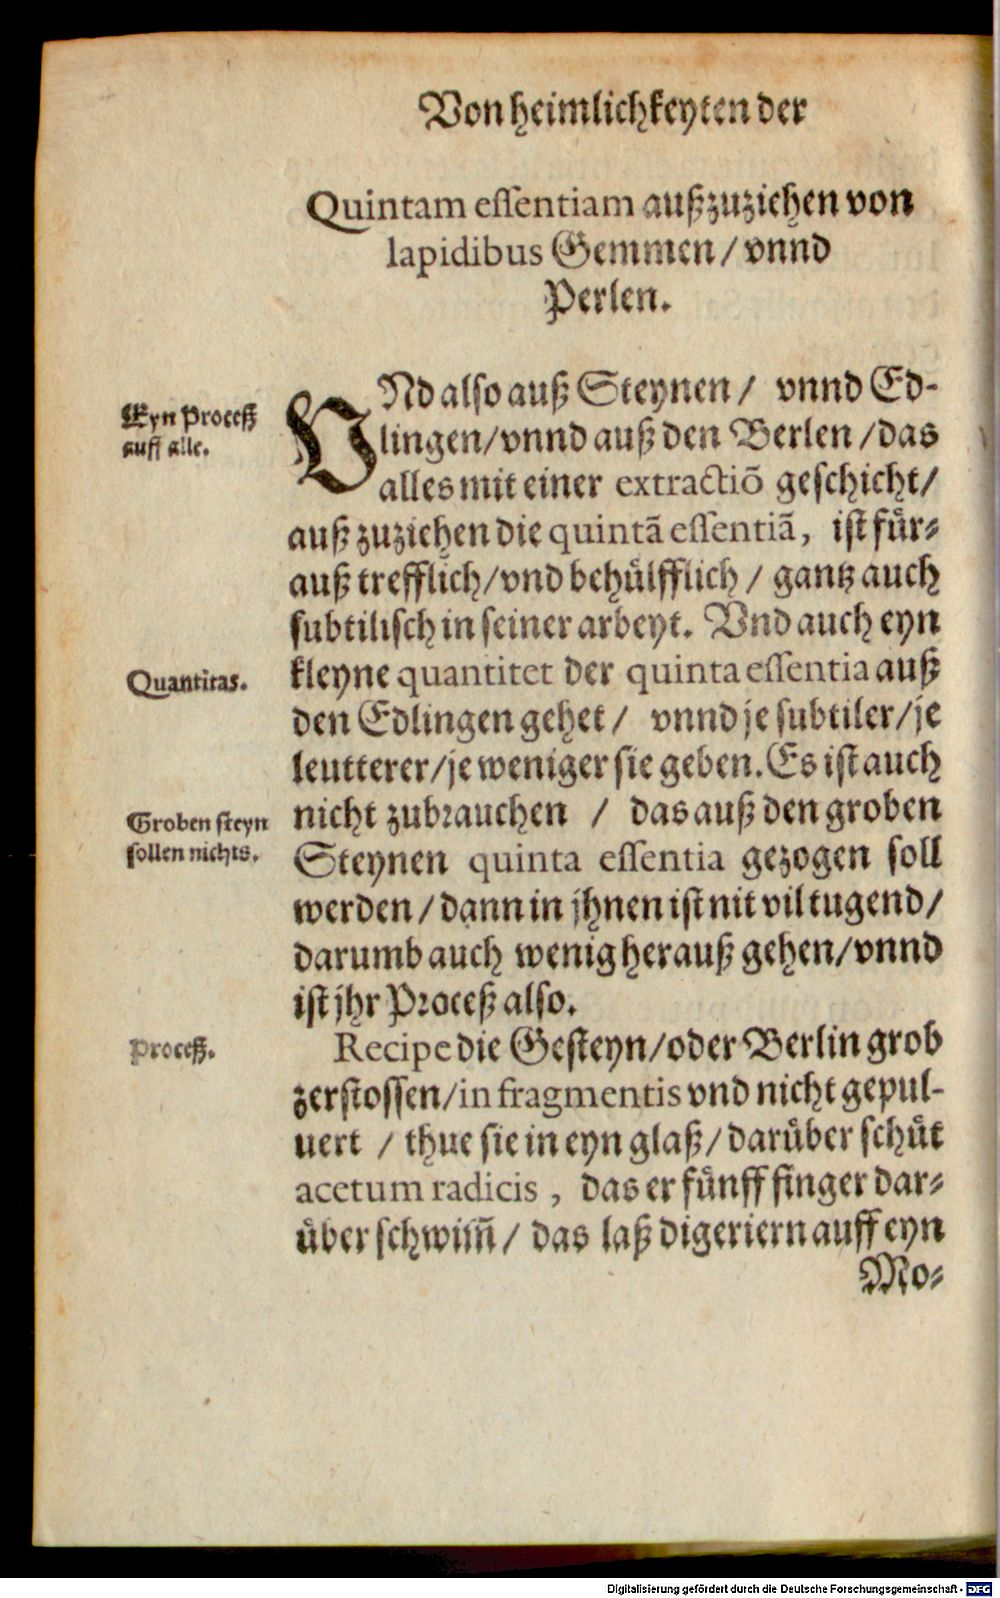 Von heimlichkeyten der
Quintam essentiam außzuziehen von
lapidibus Gemmen / vnnd
Perlen.
Eyn Proceß
auff alle.
VNd also auß Steynen / vnnd Ed-
lingen / vnnd auß den Berlen / das
alles mit einer extractiõ geschicht /
auß zuziehen die quintã essentiã, ist für-
auß trefflich / vnd behülfflich / gantz auch
subtilisch in seiner arbeyt. Vnd auch eyn
Quantitas.
kleyne quantitet der quinta essentia auß
den Edlingen gehet / vnnd je subtiler / je
leutterer / je weniger sie geben. Es ist auch
Groben steyn
sollen nichts.
nicht zubrauchen / das auß den groben
Steynen quinta essentia gezogen soll
werden / dann in jhnen ist nit vil tugend /
darumb auch wenig herauß gehen / vnnd
ist jhr Proceß also.
Proceß.
Recipe die Gesteyn / oder Berlin grob
zerstossen / in fragmentis vnd nicht gepul-
uert / thue sie in eyn glaß / darüber schüt
acetum radicis, das er fünff finger dar-
über schwim̃ / das laß digeriern auff eyn
Mo-
Digitalisierung gefördert durch die Deutsche Forschungsgemeinschaft - DFG